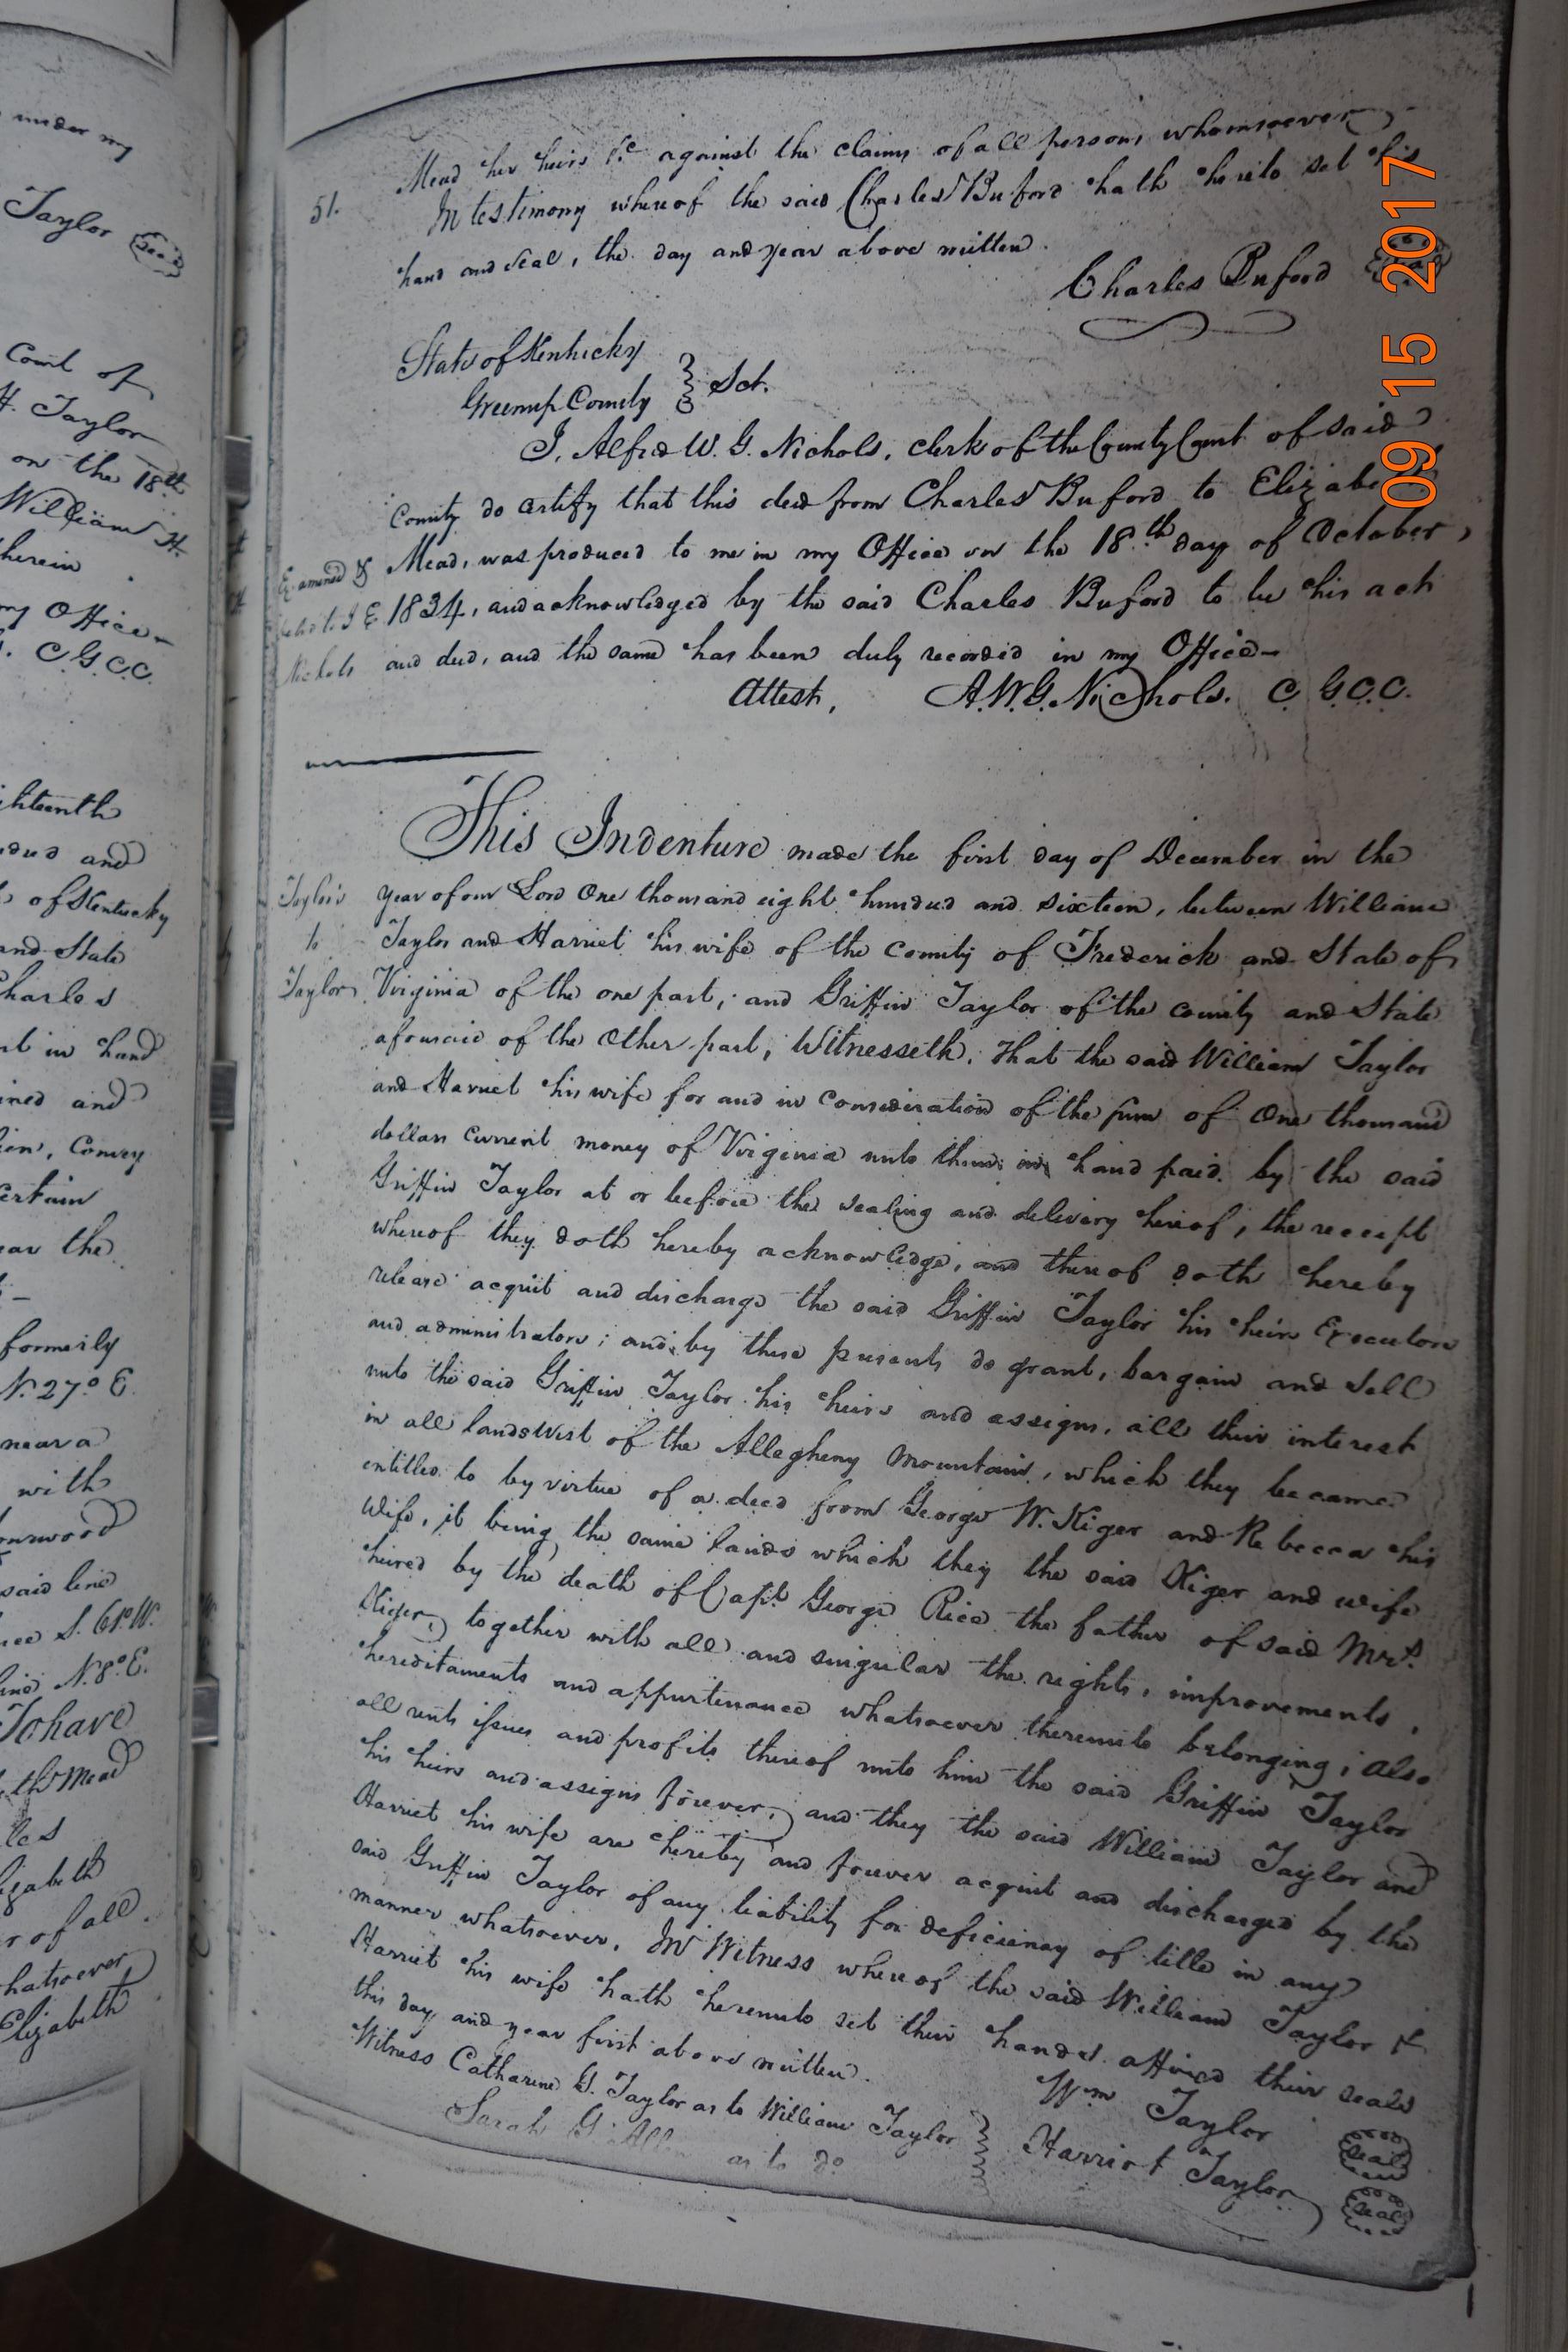 under my
Taylor (Seal)
Court of
H. Taylor
on the 18th
William H.
herein
my Office
C.G.C.C.
hteenth
and
of Kentucky
and State
Charles
in hand
and
Convey
ertain
the
formerly
N. 27° E.
near a
with
said line
S. 61° W.
line N. 8° E.
To have
th Mead
les
izabeth
r of all
hatsoever
Elizabeth
51.
Mead her heirs &c against the claims of all persons whomsoever,
In testimony whereof the said Charles Buford hath hereto set his
hand and Seal, the day and year above written.
Charles Buford (Seal)
State of Kentucky
Greenup County } Sct.
I, Alfred W. G. Nichols, clerk of the County Court of said
County do certify that this deed from Charles Buford to Elizabe
Mead, was produced to me in my Office on the 18th day of October,
1834, and acknowledged by the said Charles Buford to be his act
and deed, and the same has been duly recorded in my Office—
Attest, A.W.G. Nichols. C.G.C.C.
Examined &
Nichols
This Indenture made the first day of December in the
Taylor's
to
Taylor
year of our Lord One thousand eight hundred and sixteen, between William
Taylor and Harriet his wife of the county of Frederick and State of
Virginia of the one part, and Griffin Taylor of the county and State
aforesaid of the Other part, Witnesseth. That the said William Taylor
and Harriet his wife for and in Consideration of the sum of One thousand
dollars current money of Virginia unto them in hand paid by the said
Griffin Taylor at or before the sealing and delivery hereof, the receipt
whereof they doth hereby acknowledge, and thereof doth hereby
release acquit and discharge the said Griffin Taylor his heirs Executors
and administrators; and by these presents do grant, bargain and Sell
unto the said Griffin Taylor his heirs and assigns, all their interest
in all lands West of the Allegheny Mountain, which they became
entitled to by virtue of a deed from George W. Kiger and Rebecca his
Wife, it being the same lands which they the said Kiger and wife
heired by the death of Capt. George Rice the father of said Mrs.
Kiger, together with all and singular the rights, improvements,
hereditaments and appurtenance whatsoever thereunto belonging; also
all rents issues and profits thereof unto him the said Griffin Taylor
his heirs and assigns forever, and they the said William Taylor and
Harriet his wife are hereby and forever acquit and discharged by the
said Griffin Taylor of any liability for deficiency of title in any
manner whatsoever. In Witness whereof the said William Taylor &
Harriet his wife hath hereunto set their hands affixed their seals
this day and year first above written.
Witness Catharine G. Taylor as to William Taylor
Sarah G. as to do
Wm Taylor (Seal)
Harriot Taylor (Seal)
09 15 2017